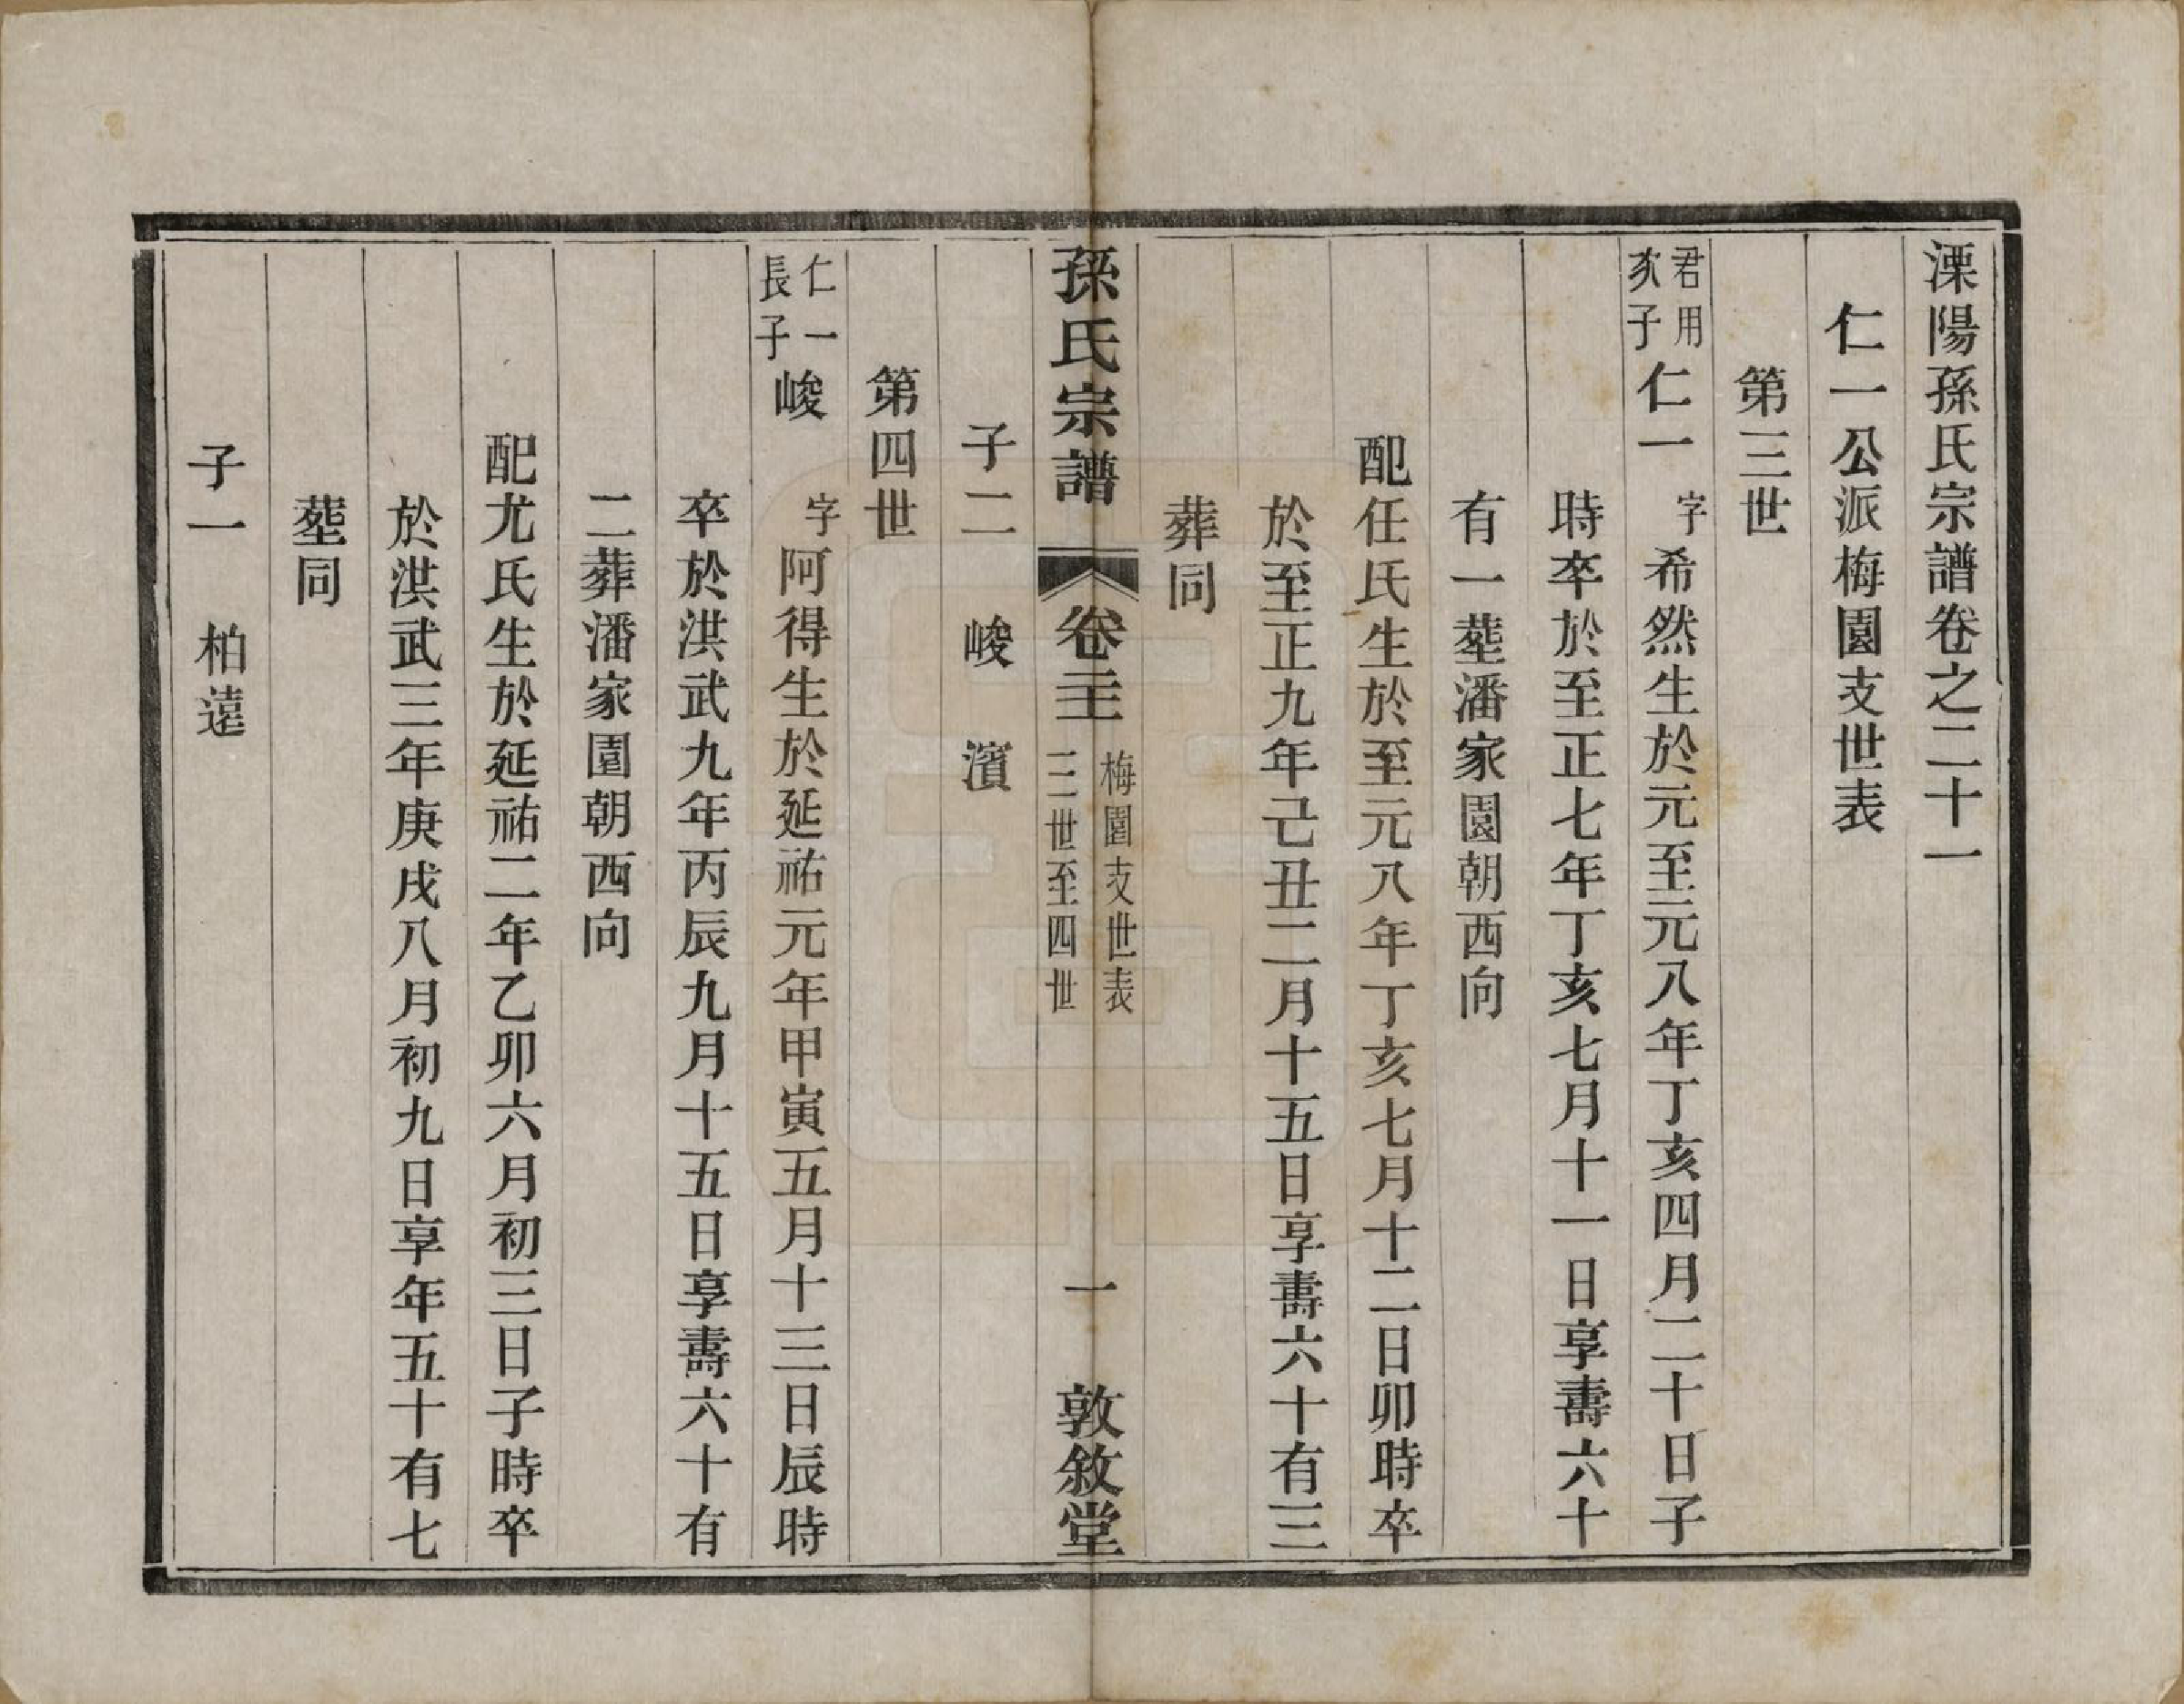 溧陽孫氏宗譜卷之二十一
仁一公派梅園支世表
第三世
君用次子仁一 字希然生於元至元八年丁亥四月二十日子
時卒於至正七年丁亥七月十一日享壽六十
有一塟潘家園朝西向
配任氏生於至元八年丁亥七月十二日卯時卒
於至正九年己丑二月十五日享壽六十有三
葬同
孫氏宗譜 卷二十一 梅園支世表 三世至四世 一 敦敘堂
子二 峻 濱
第四世
仁一長子峻 字阿得生於延祐元年甲寅五月十三日辰時
卒於洪武九年丙辰九月十五日享壽六十有
二葬潘家園朝西向
配尤氏生於延祐二年乙卯六月初三日子時卒
於洪武三年庚戌八月初九日享年五十有七
塟同
子一 柏遠